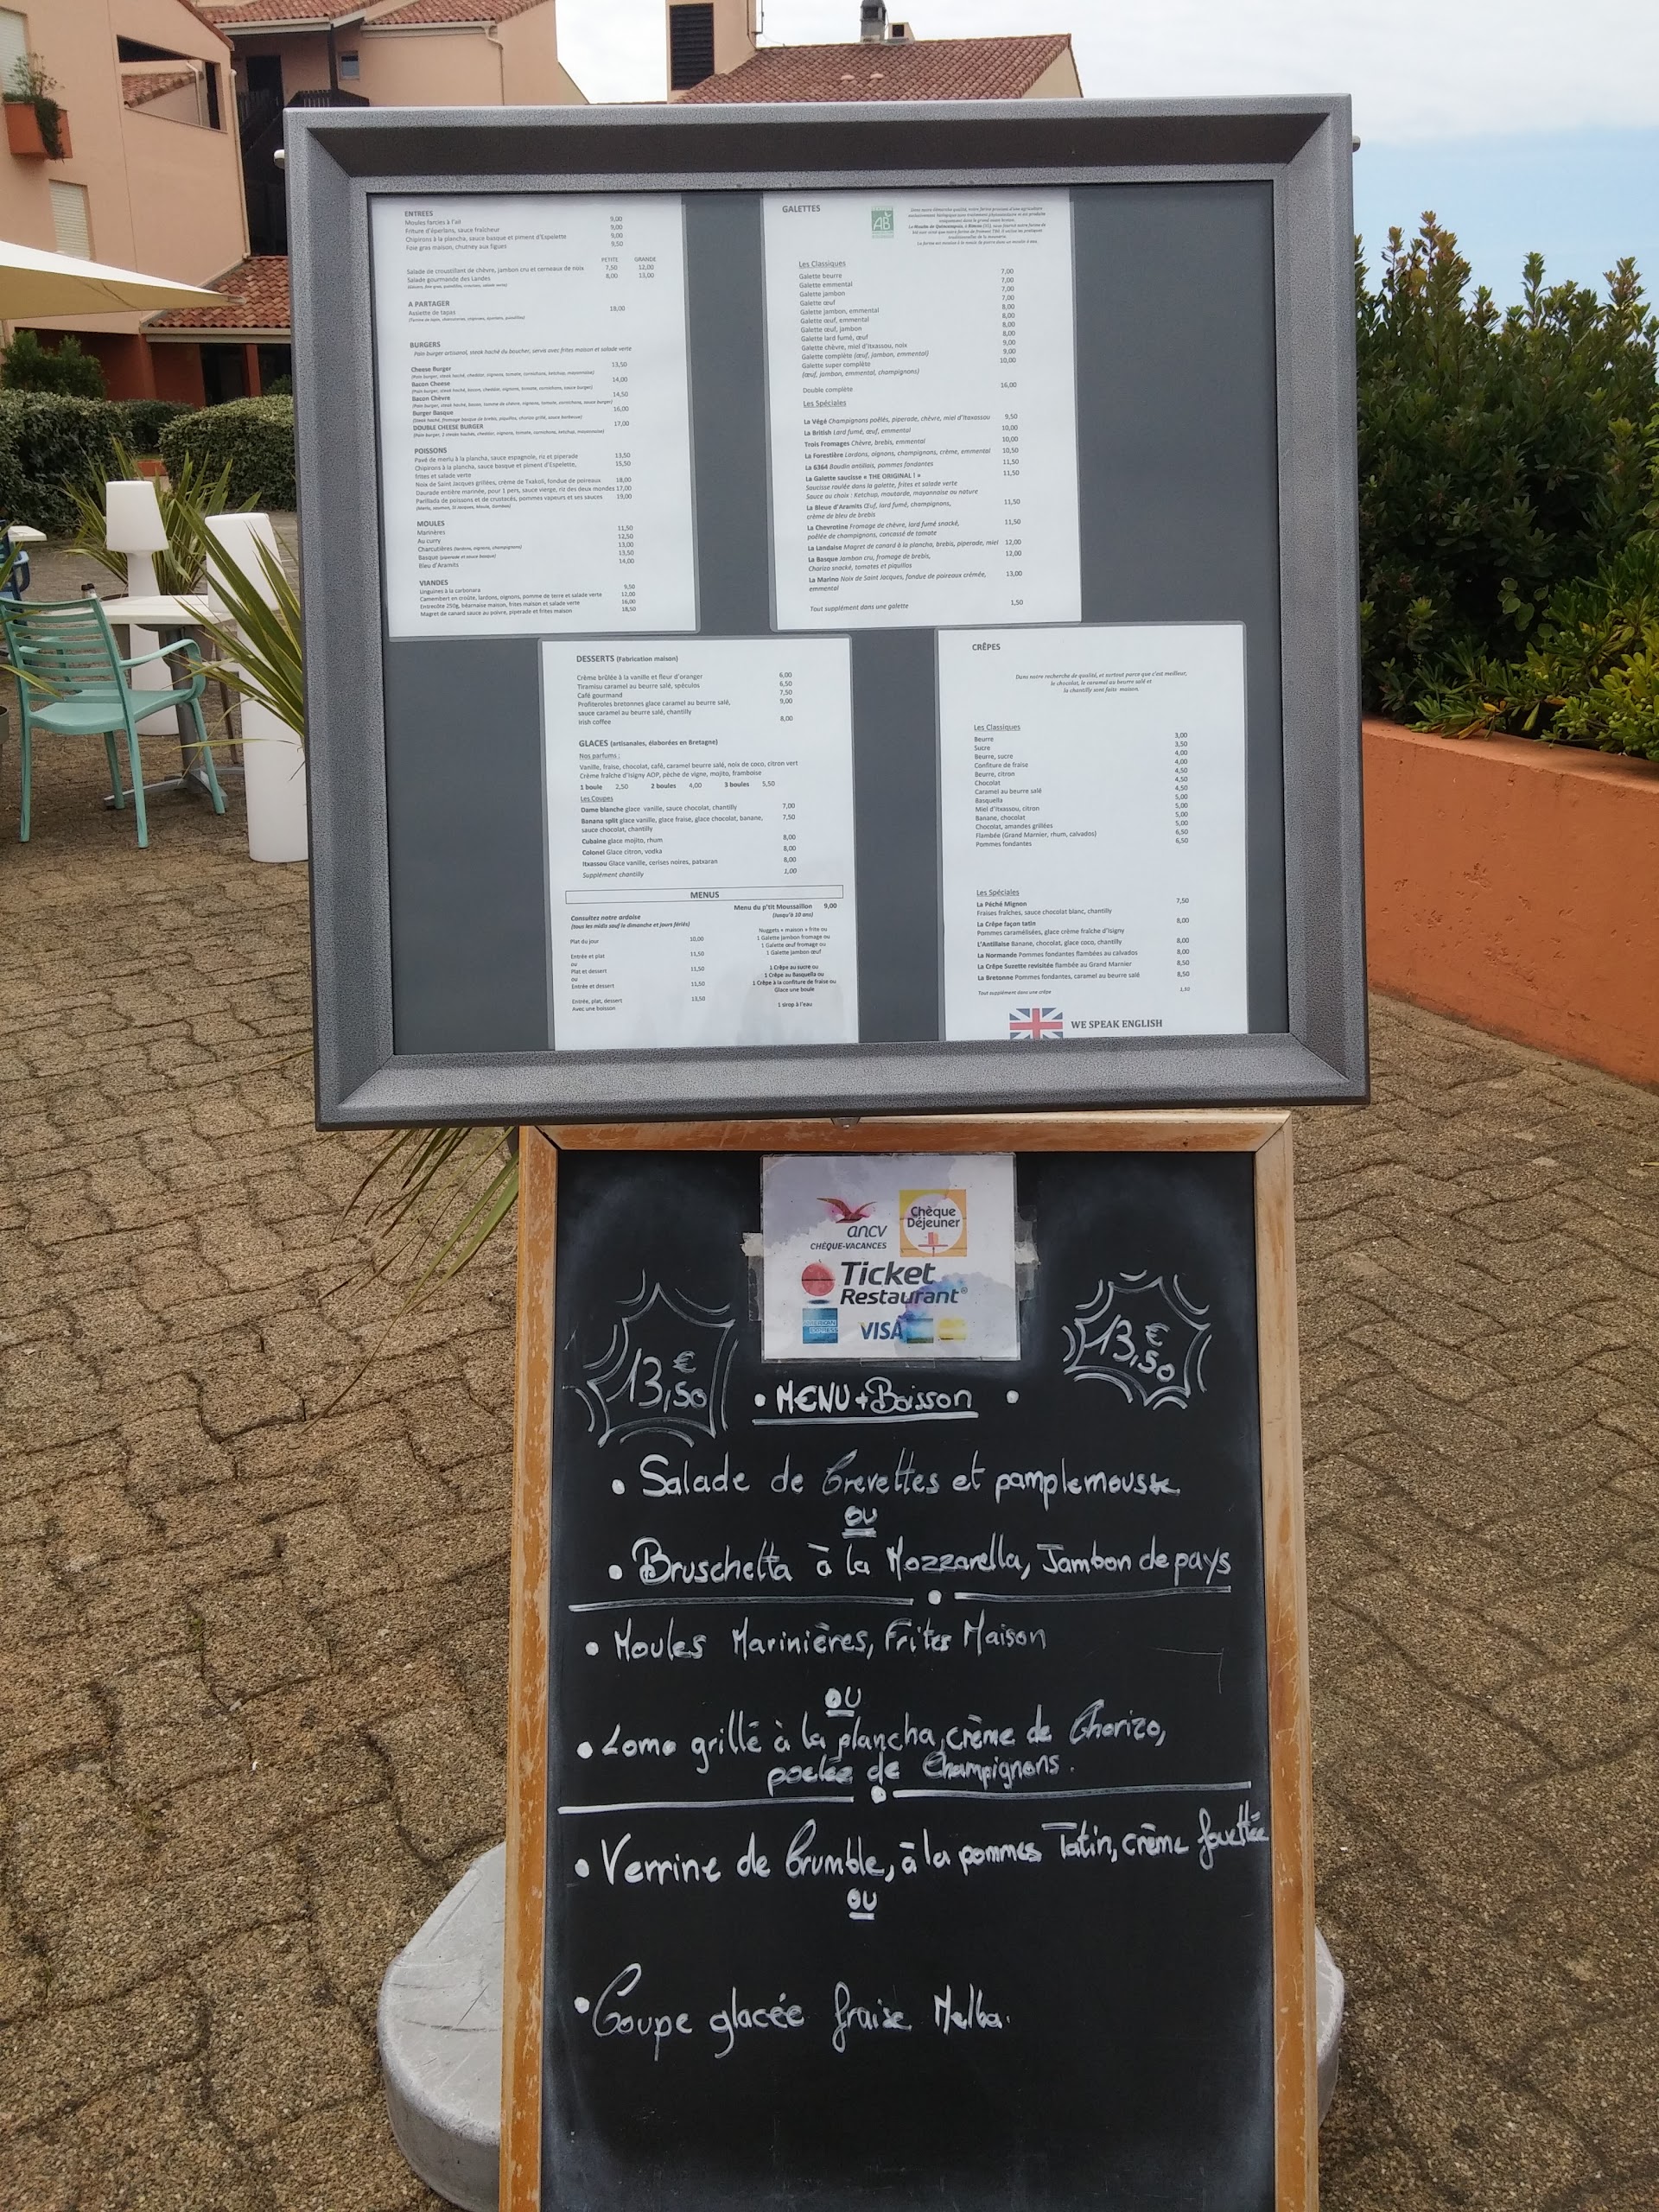 ENTREES
Moules farcies à l'ail 9,00
Friture d'éperlans, sauce fraîcheur 9,00
Chipirons à la plancha, sauce basque et piment d'Espelette 9,00
Foie gras maison, chutney aux figues 9,50
PETITE GRANDE
Salade de croustillant de chèvre, jambon cru et cerneaux de noix 7,50 12,00
Salade gourmande des Landes 8,00 13,00
A PARTAGER
Assiette de tapas 18,00
BURGERS
Pain burger artisanal, steak haché du boucher, servis avec frites maison et salade verte
Cheese Burger 13,50
(Pain burger, steak haché, cheddar, oignons, tomate, cornichons, ketchup, mayonnaise)
Bacon Cheese 14,00
(Pain burger, steak haché, bacon, cheddar, oignons, tomate, cornichons, sauce burger)
Bacon Chèvre 14,50
(Pain burger, steak haché, bacon, tomme de chèvre, oignons, tomate, cornichons, sauce burger)
Burger Basque 16,00
(Steak haché, fromage basque de brebis, piquillos, chorizo grillé, sauce barbecue)
DOUBLE CHEESE BURGER 17,00
(Pain burger, 2 steaks hachés, cheddar, oignons, tomate, cornichons, ketchup, mayonnaise)
POISSONS
Pavé de merlu à la plancha, sauce espagnole, riz et piperade 13,50
Chipirons à la plancha, sauce basque et piment d'Espelette, 15,50
frites et salade verte
Noix de Saint Jacques grillées, crème de Txakoli, fondue de poireaux 18,00
Daurade entière marinée, pour 1 pers, sauce vierge, riz des deux mondes 17,00
Parillada de poissons et de crustacés, pommes vapeurs et ses sauces 19,00
MOULES
Marinières 11,50
Au curry 12,50
Charcutières (lardons, oignons, champignons) 13,00
Basque (piperade et sauce basque) 13,50
Bleu d'Aramits 14,00
VIANDES
Linguines à la carbonara 9,50
Camembert en croûte, lardons, oignons, pomme de terre et salade verte 12,00
Entrecôte 250g, béarnaise maison, frites maison et salade verte 16,00
Magret de canard sauce au poivre, piperade et frites maison 18,50
GALETTES
AB
Les Classiques
Galette beurre 7,00
Galette emmental 7,00
Galette jambon 7,00
Galette œuf 7,00
Galette jambon, emmental 8,00
Galette œuf, emmental 8,00
Galette œuf, jambon 8,00
Galette lard fumé, œuf 8,00
Galette chèvre, miel d'Itxassou, noix 9,00
Galette complète (œuf, jambon, emmental) 9,00
Galette super complète 10,00
(œuf, jambon, emmental, champignons)
Double complète 16,00
Les Spéciales
La Végé Champignons poêlés, piperade, chèvre, miel d'Itxassou 9,50
La British Lard fumé, œuf, emmental 10,00
Trois Fromages Chèvre, brebis, emmental 10,00
La Forestière Lardons, oignons, champignons, crème, emmental 10,50
La 6364 Boudin antillais, pommes fondantes 11,50
La Galette saucisse « THE ORIGINAL ! » 11,50
Saucisse roulée dans la galette, frites et salade verte
Sauce au choix : Ketchup, moutarde, mayonnaise ou nature
La Bleue d'Aramits Œuf, lard fumé, champignons, 11,50
crème de bleu de brebis
La Chevrotine Fromage de chèvre, lard fumé snacké, 11,50
poêlée de champignons, concassé de tomate
La Landaise Magret de canard à la plancha, brebis, piperade, miel 12,00
La Basque Jambon cru, fromage de brebis, 12,00
Chorizo snacké, tomates et piquillos
La Marino Noix de Saint Jacques, fondue de poireaux crémée, 13,00
emmental
Tout supplément dans une galette 1,50
DESSERTS (Fabrication maison)
Crème brûlée à la vanille et fleur d'oranger 6,00
Tiramisu caramel au beurre salé, spéculos 6,50
Café gourmand 7,50
Profiteroles bretonnes glace caramel au beurre salé, 9,00
sauce caramel au beurre salé, chantilly
Irish coffee 8,00
GLACES (artisanales, élaborées en Bretagne)
Nos parfums :
Vanille, fraise, chocolat, café, caramel beurre salé, noix de coco, citron vert
Crème fraîche d'Isigny AOP, pêche de vigne, mojito, framboise
1 boule 2,50 2 boules 4,00 3 boules 5,50
Les Coupes
Dame blanche glace vanille, sauce chocolat, chantilly 7,00
Banana split glace vanille, glace fraise, glace chocolat, banane, 7,50
sauce chocolat, chantilly
Cubaine glace mojito, rhum 8,00
Colonel Glace citron, vodka 8,00
Itxassou Glace vanille, cerises noires, patxaran 8,00
Supplément chantilly 1,00
MENUS
Consultez notre ardoise
(tous les midis sauf le dimanche et jours fériés)
Plat du jour 10,00
Entrée et plat 11,50
ou
Plat et dessert 11,50
ou
Entrée et dessert 11,50
Entrée, plat, dessert 13,50
Avec une boisson
Menu du p'tit Moussaillon 9,00
(Jusqu'à 10 ans)
Nuggets « maison » frite ou
1 Galette jambon fromage ou
1 Galette œuf fromage ou
1 Galette jambon œuf
1 Crêpe au sucre ou
1 Crêpe au Basquella ou
1 Crêpe à la confiture de fraise ou
Glace une boule
1 sirop à l'eau
CRÊPES
Dans notre recherche de qualité, et surtout parce que c'est meilleur,
le chocolat, le caramel au beurre salé et
la chantilly sont faits maison.
Les Classiques
Beurre 3,00
Sucre 3,50
Beurre, sucre 4,00
Confiture de fraise 4,00
Beurre, citron 4,50
Chocolat 4,50
Caramel au beurre salé 4,50
Basquella 5,00
Miel d'Itxassou, citron 5,00
Banane, chocolat 5,00
Chocolat, amandes grillées 5,00
Flambée (Grand Marnier, rhum, calvados) 6,50
Pommes fondantes 6,50
Les Spéciales
La Péché Mignon 7,50
Fraises fraîches, sauce chocolat blanc, chantilly
La Crêpe façon tatin 8,00
Pommes caramélisées, glace crème fraîche d'Isigny
L'Antillaise Banane, chocolat, glace coco, chantilly 8,00
La Normande Pommes fondantes flambées au calvados 8,00
La Crêpe Suzette revisitée flambée au Grand Marnier 8,50
La Bretonne Pommes fondantes, caramel au beurre salé 8,50
Tout supplément dans une crêpe
WE SPEAK ENGLISH
ancv
CHÈQUE-VACANCES
Chèque
Déjeuner
Ticket
Restaurant®
AMERICAN
EXPRESS
VISA
13,50 €
13,50 €
• MENU + Boisson •
• Salade de Crevettes et pamplemousse
ou
• Bruschetta à la Mozzarella, Jambon de pays
• Moules Marinières, Frites Maison
ou
• Lomo grillé à la plancha, crème de Chorizo,
poelée de Champignons.
• Verrine de Crumble, à la pommes Tatin, crème fouettée
ou
• Coupe glacée fraise Melba.